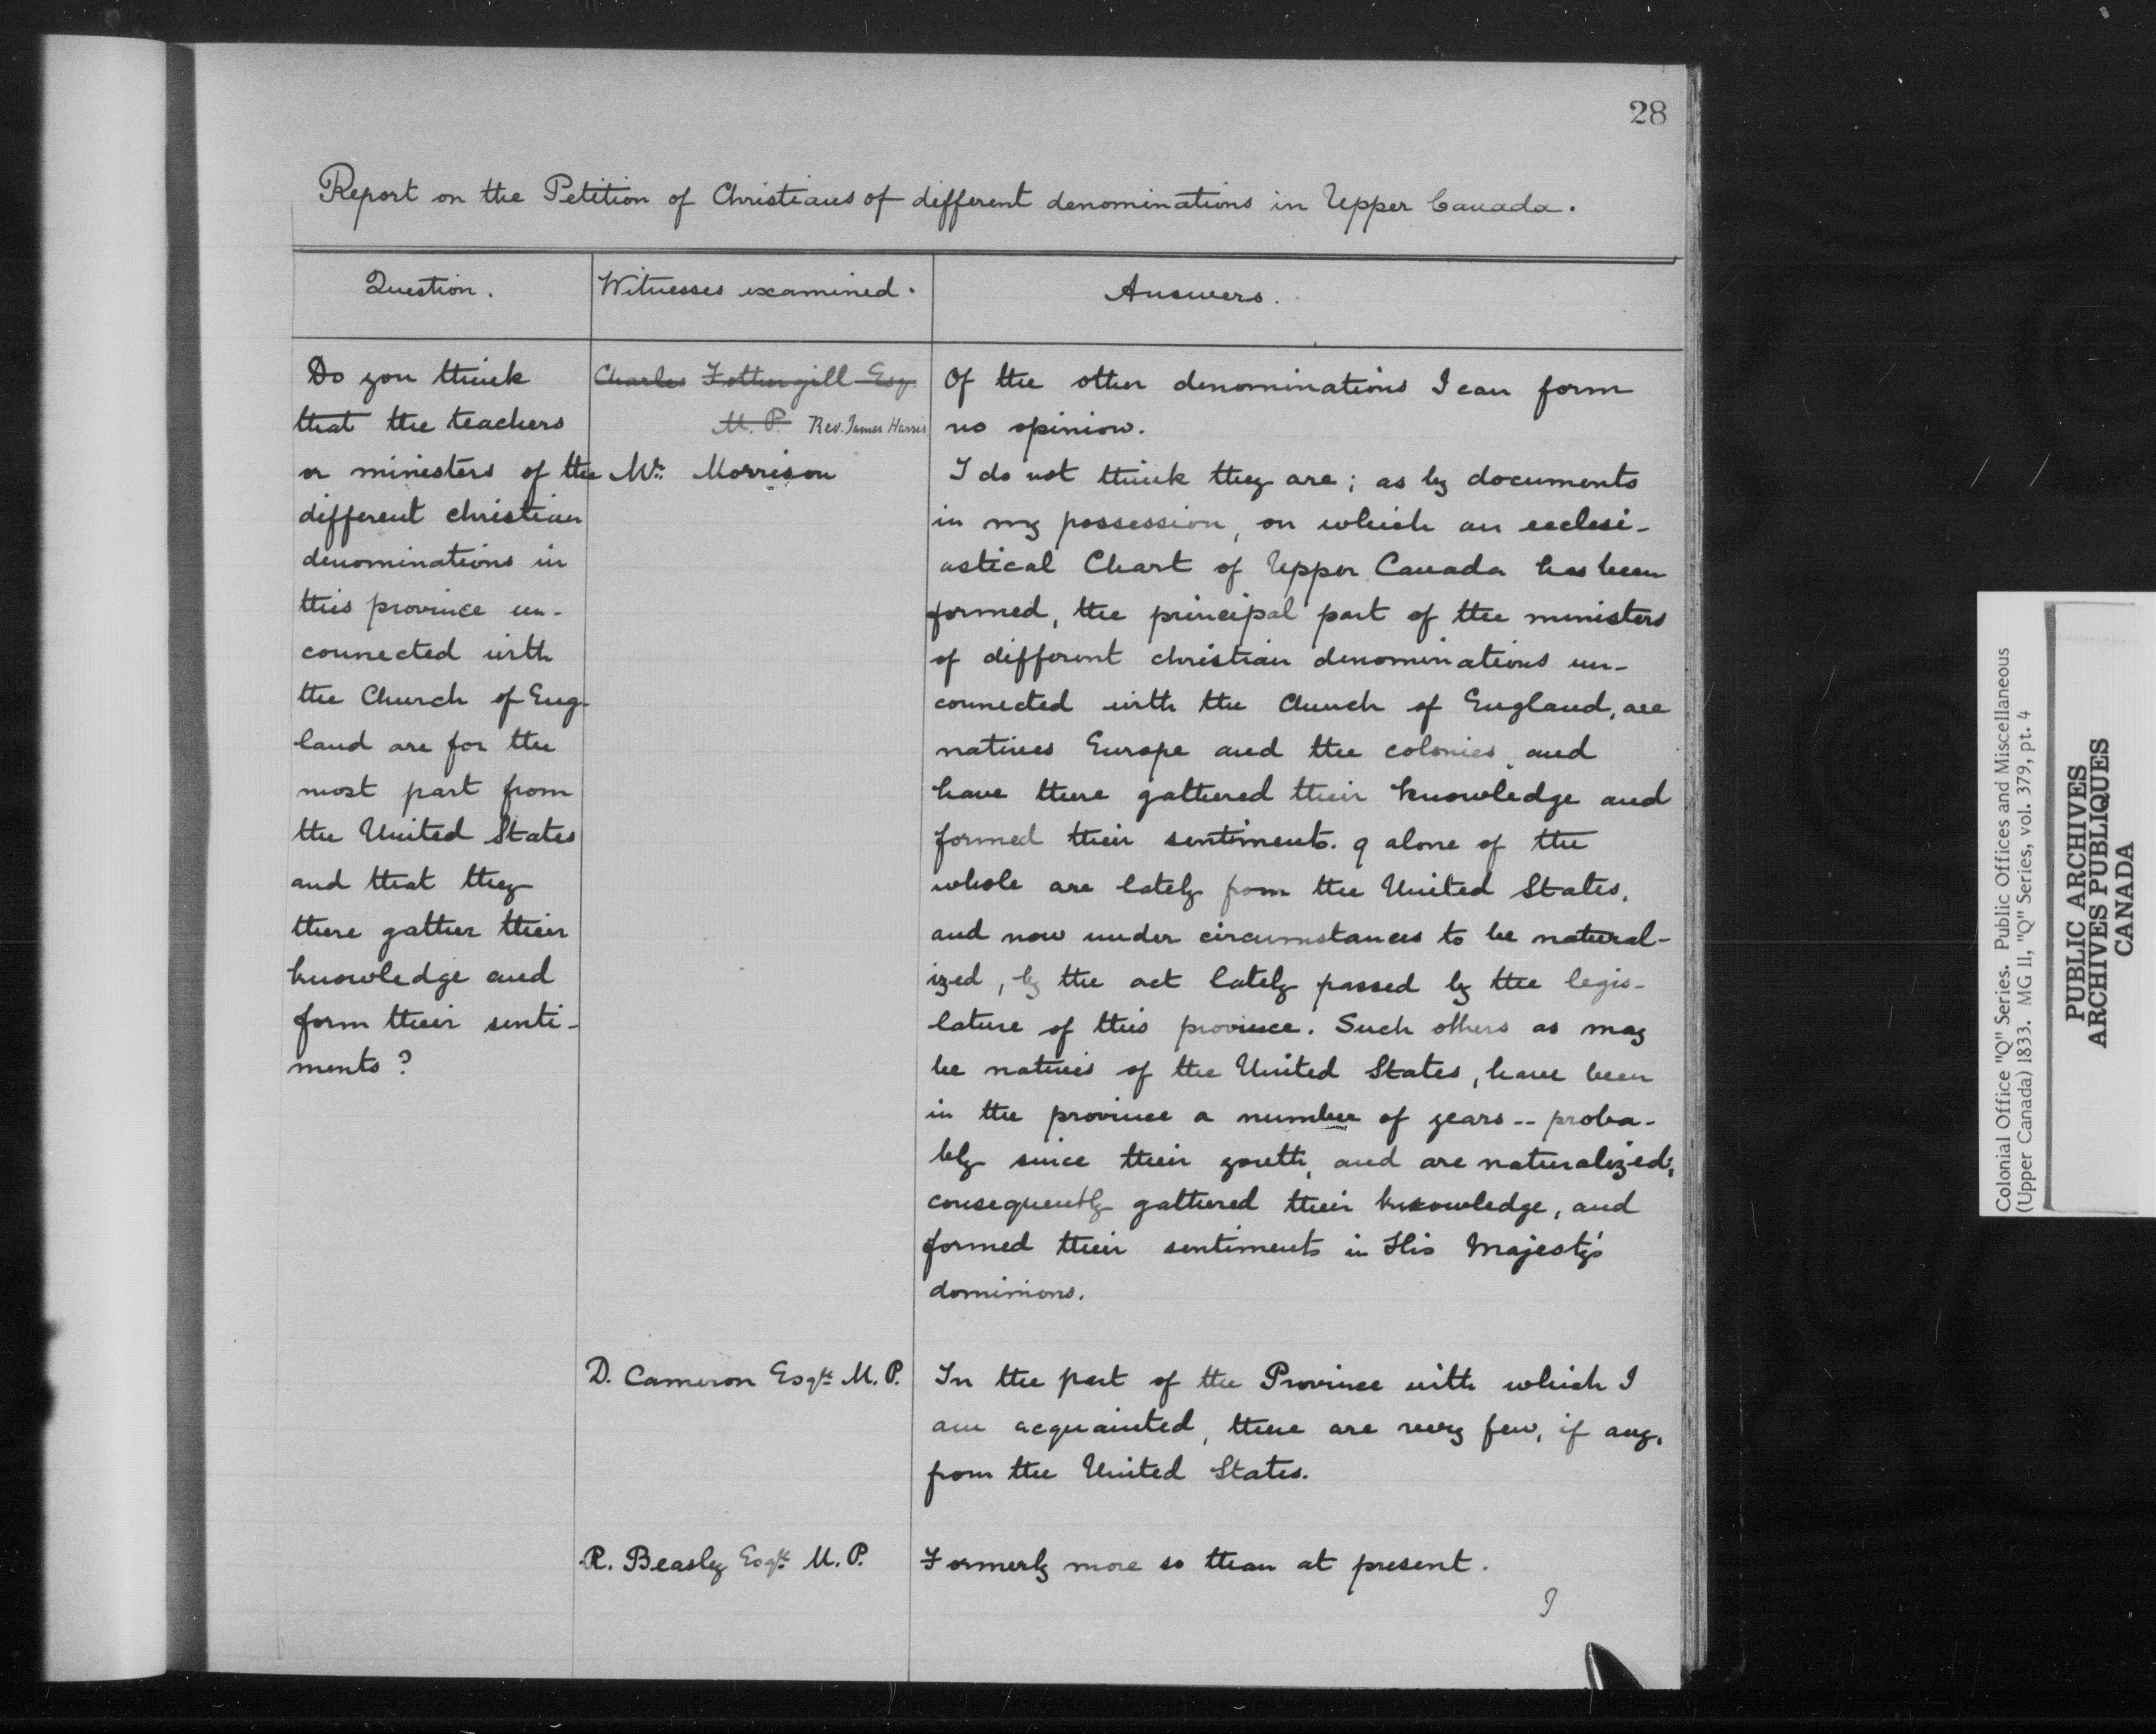 28
Report on the Petition of Christians of different denominations in Upper Canada.
Question.
Witnesses examined.
Answers.
Do you think
that the teachers
or ministers of the
different christian
denominations in
this province un-
connected with
the Church of Eng-
land are for the
most part from
the United States
and that they
there gather their
knowledge and
form their senti-
ments?
Charles Fothergill Esq.
M. P. Rev. James Harris
Of the other denominations I can form
no opinion.
Mr. Morrison
I do not think they are; as by documents
in my possession, on which an ecclesi-
astical Chart of Upper Canada has been
formed, the principal part of the ministers
of different christian denominations un-
connected with the Church of England, are
natives Europe and the colonies, and
have there gathered their knowledge and
formed their sentiments. 9 alone of the
whole are lately from the United States,
and now under circumstances to be natural-
ized, by the act lately passed by the legis-
lature of this province. Such others as may
be natives of the United States, have been
in the province a number of years -- proba-
bly since their youth, and are naturalized;
consequently gathered their knowledge, and
formed their sentiments in His Majesty's
dominions.
D. Cameron Esqre M. P.
In the part of the Province with which I
am acquainted, there are very few, if any,
from the United States.
R. Beasly Esqre M. P.
Formerly more so than at present.
I
Colonial Office "Q" Series. Public Offices and Miscellaneous
(Upper Canada) 1833. MG 11, "Q" Series, vol. 379, pt. 4
PUBLIC ARCHIVES
ARCHIVES PUBLIQUES
CANADA